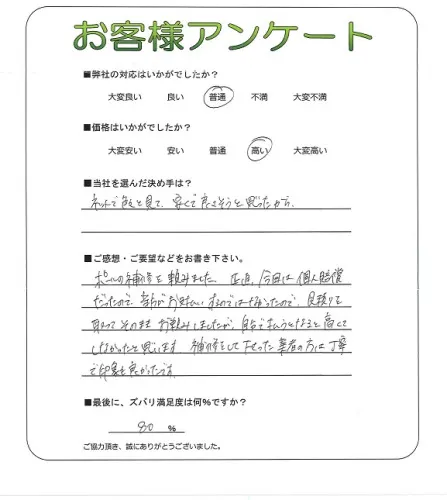 お客様アンケート
■弊社の対応はいかがでしたか？
大変良い 良い 普通 不満 大変不満
■価格はいかがでしたか？
大変安い 安い 普通 高い 大変高い
■当社を選んだ決め手は？
ネットで を見て、安くて良さそうと思ったから。
■ご感想・ご要望などをお書き下さい。
ポールの補修を頼みました。正直、今回は個人賠償
だったので、 お支払いするのではなかったので、見積りを
取ってそのままお願いしましたが、自分で払うとなると高くて
しなかったと思います 補修をして下さった業者の方は丁寧
で印象も良かったです。
■最後に、ズバリ満足度は何%ですか？
80 %
ご協力頂き、誠にありがとうございました。